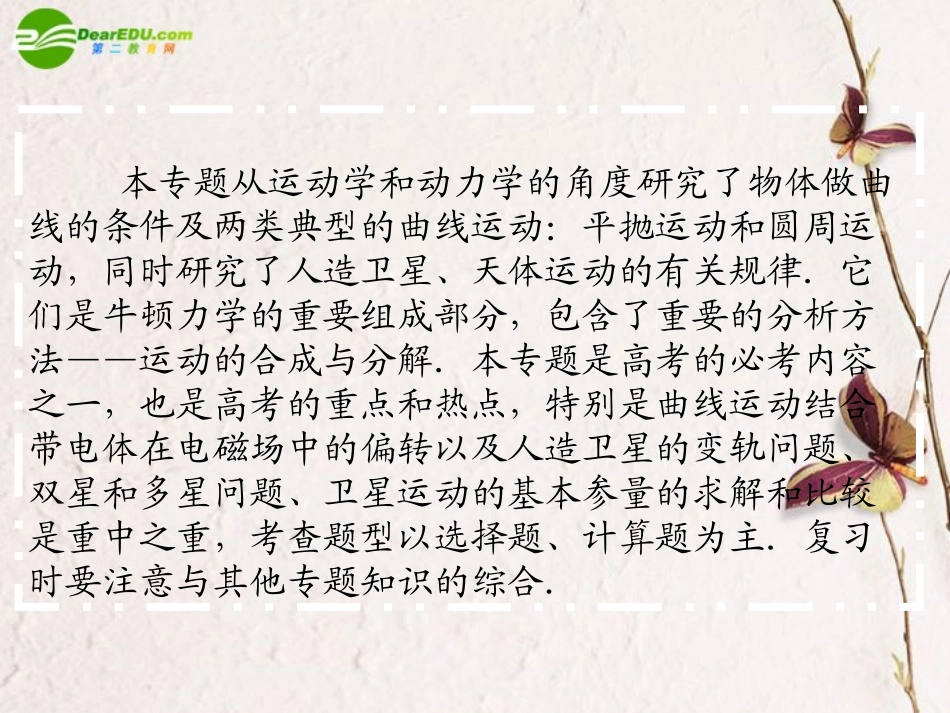 DearEDU.com
第二教育网
本专题从运动学和动力学的角度研究了物体做曲
线的条件及两类典型的曲线运动：平抛运动和圆周运
动，同时研究了人造卫星、天体运动的有关规律．它
们是牛顿力学的重要组成部分，包含了重要的分析方
法——运动的合成与分解．本专题是高考的必考内容
之一，也是高考的重点和热点，特别是曲线运动结合
带电体在电磁场中的偏转以及人造卫星的变轨问题、
双星和多星问题、卫星运动的基本参量的求解和比较
是重中之重，考查题型以选择题、计算题为主．复习
时要注意与其他专题知识的综合．